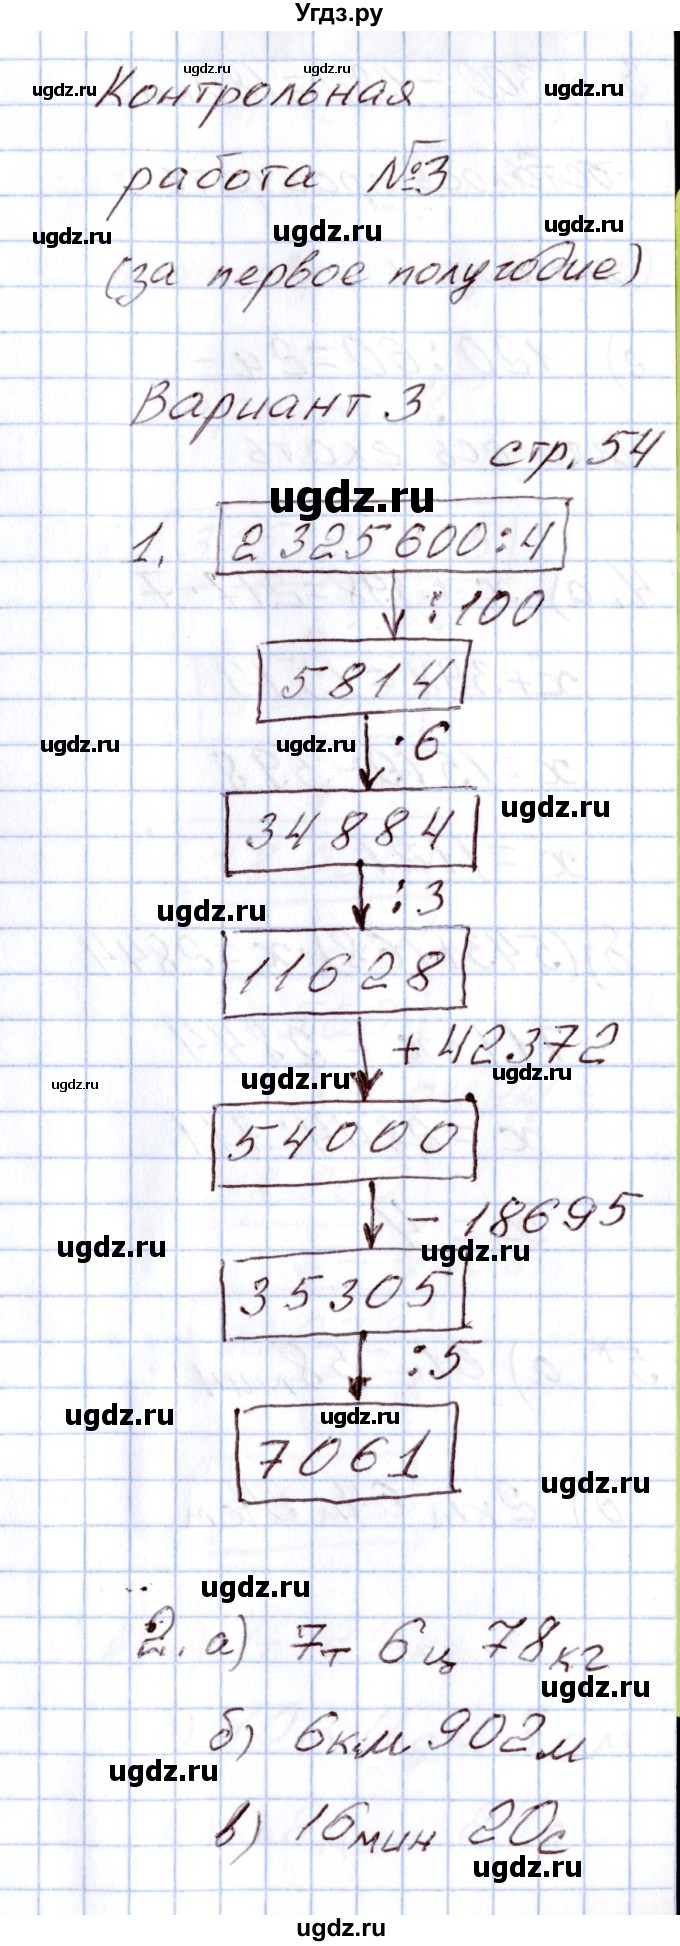 Угдз.ру
ugdz.ru ugdz.ru
ugdz.ru ugdz.ru
Контрольная
работа №3
ugdz.ru ugdz.ru ugdz.ru
(за первое полугодие)
Вариант 3
стр. 54
ugdz.ru
1. 2325600:4
:100
5814
ugdz.ru ugdz.ru
·6
ugdz.ru
34884
ugdz.ru
:3
11628
+ 42372
ugdz.ru ugdz.ru ugdz.ru
54000
- 18695
ugdz.ru ugdz.ru
35305
:5
ugdz.ru ugdz.ru
7061
ugdz.ru
ugdz.ru
2. а) 7т 6ц 78кг
ugdz.ru
б) 6км 902м
ugdz.ru
в) 16мин 20с
ugdz.ru
ugdz.ru